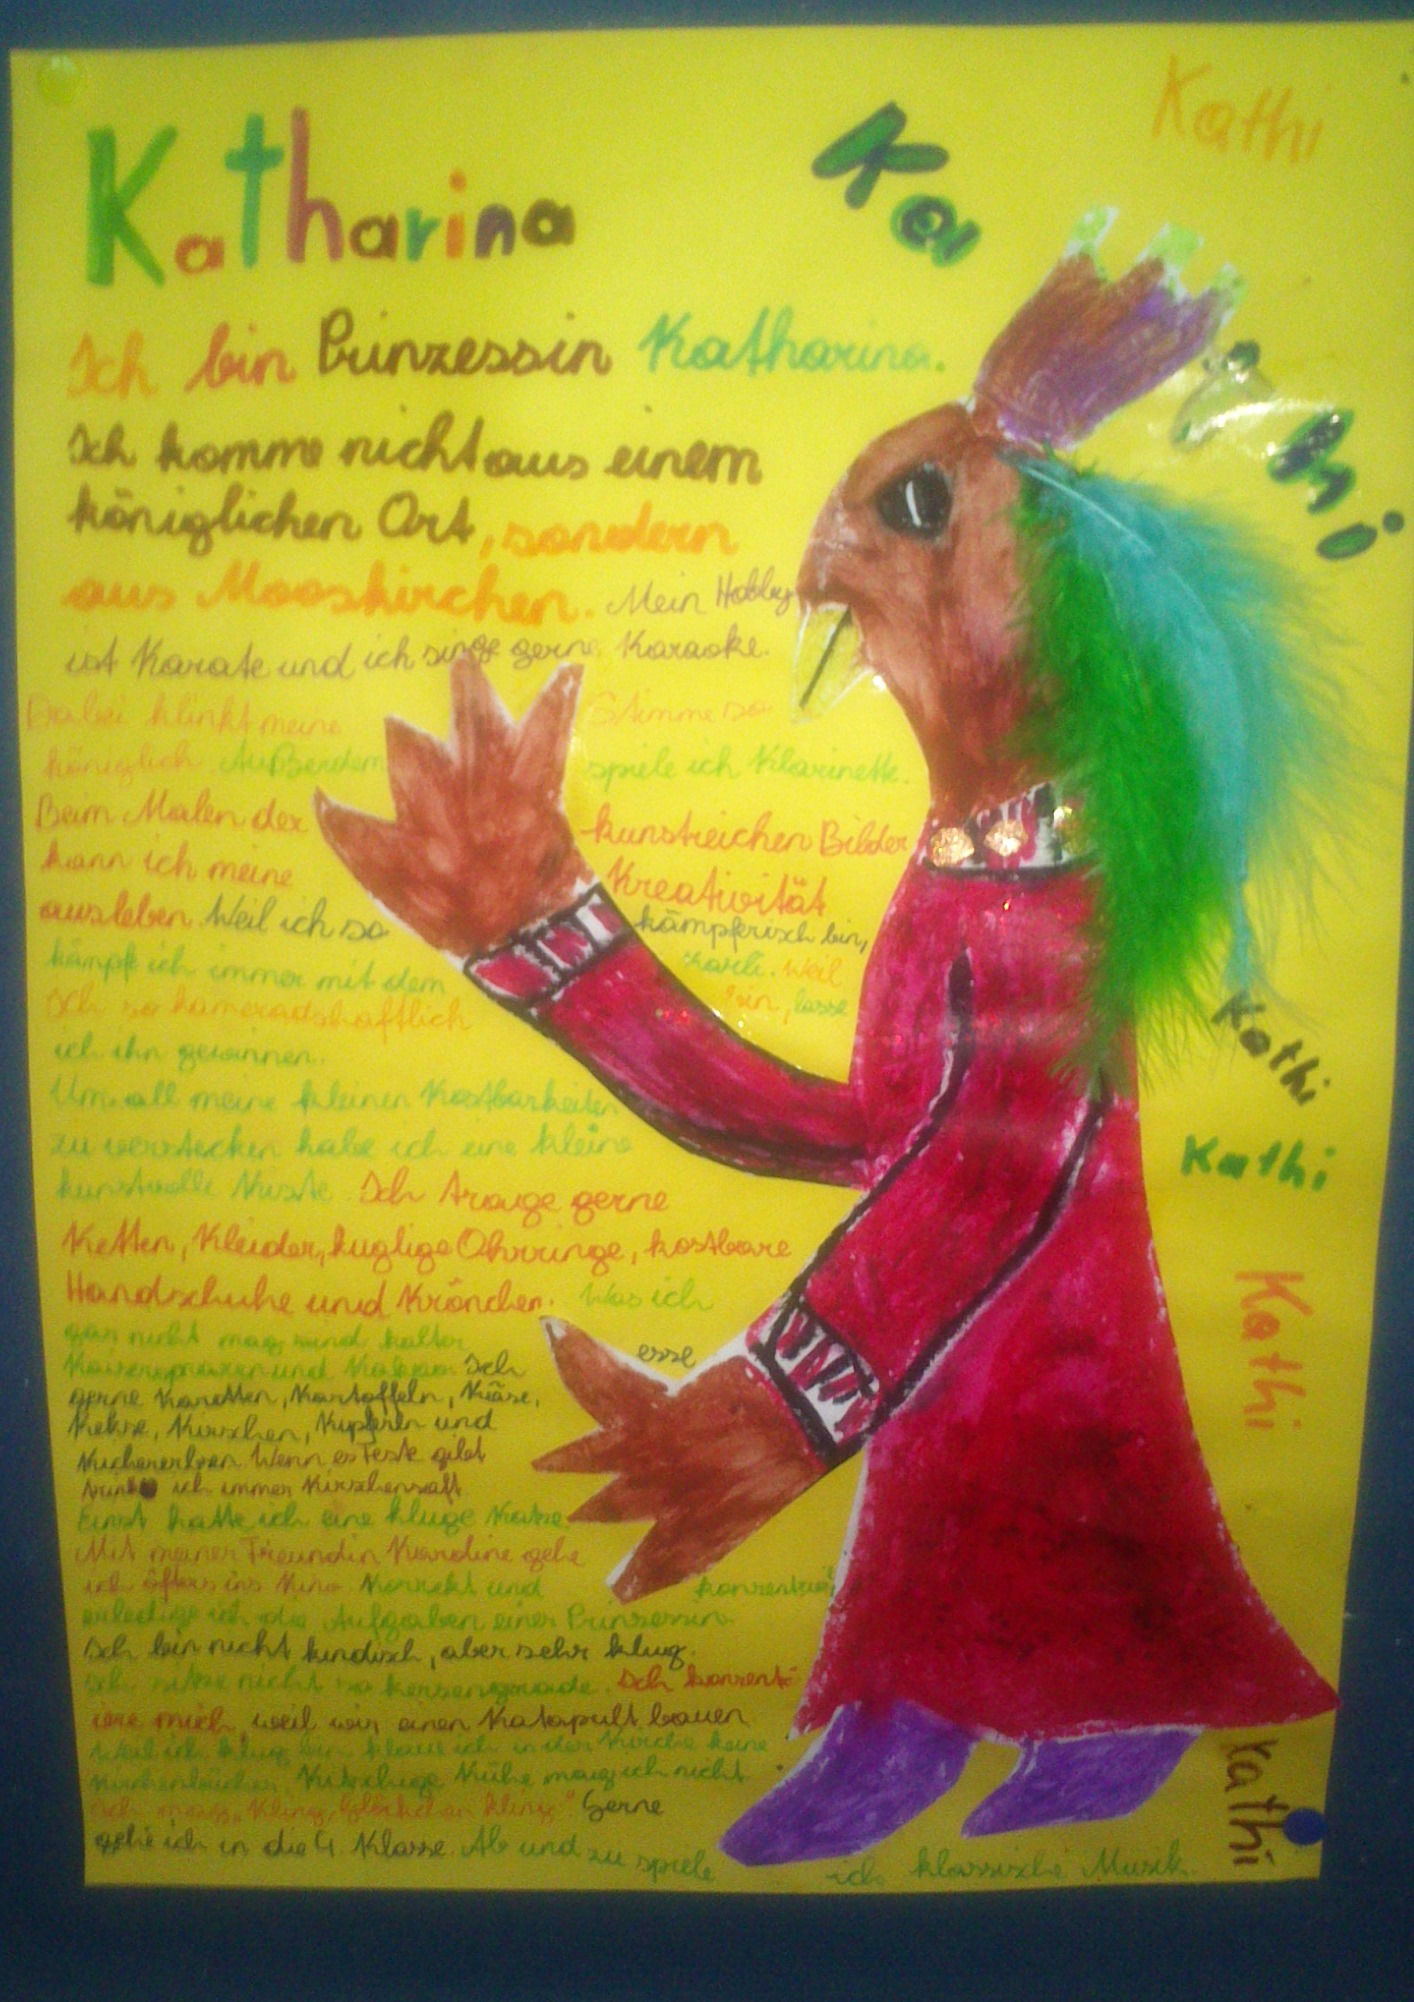 Katharina
Kathi
Ka
thi
Ich bin Prinzessin Katharina.
Ich komme nicht aus einem
königlichen Ort, sondern
aus Mooskirchen. Mein Hobby
ist Karate und ich singe gerne Karaoke.
Dabei klinkt meine Stimme so
königlich. Außerdem spiele ich Klarinette.
Beim Malen der kunstreichen Bilder
kann ich meine Kreativität
ausleben. Weil ich so kämpferisch bin,
kämpfe ich immer mit dem Karli. Weil
Ich so kameradschaftlich bin, lasse
ich ihn gewinnen.
Um all meine kleinen Kostbarkeiten
zu verstecken habe ich eine kleine
kunstvolle Kiste. Ich trage gerne
Ketten, Kleider, kuglige Ohrringe, kostbare
Handschuhe und Krönchen. Was ich
gar nicht mag sind kalter
und Kakao. Ich esse
gerne Karotten, Kartoffeln, Käse,
Kekse, Kirschen, Kipferln und
Wenn es Feste gibt
ich immer Kirschensaft
Einst hatte ich eine kluge Katze.
Mit meiner Freundin gehe
ich öfters ins Kino. Korrekt und
erledige ich die Aufgaben einer Prinzessin.
Ich bin nicht kindisch, aber sehr klug.
Ich sitze nicht so kerzengerade. Ich konzent-
iere mich, weil wir einen Katapult bauen
Weil ich klug bin, klaue ich in der Kirche keine
Kühe mag ich nicht
Ich mag „Kling, Glöckchen kling" Gerne
gehe ich in die 4. Klasse. Ab und zu spiele ich klassische Musik.
Kathi
Kathi
Kathi
Kathi